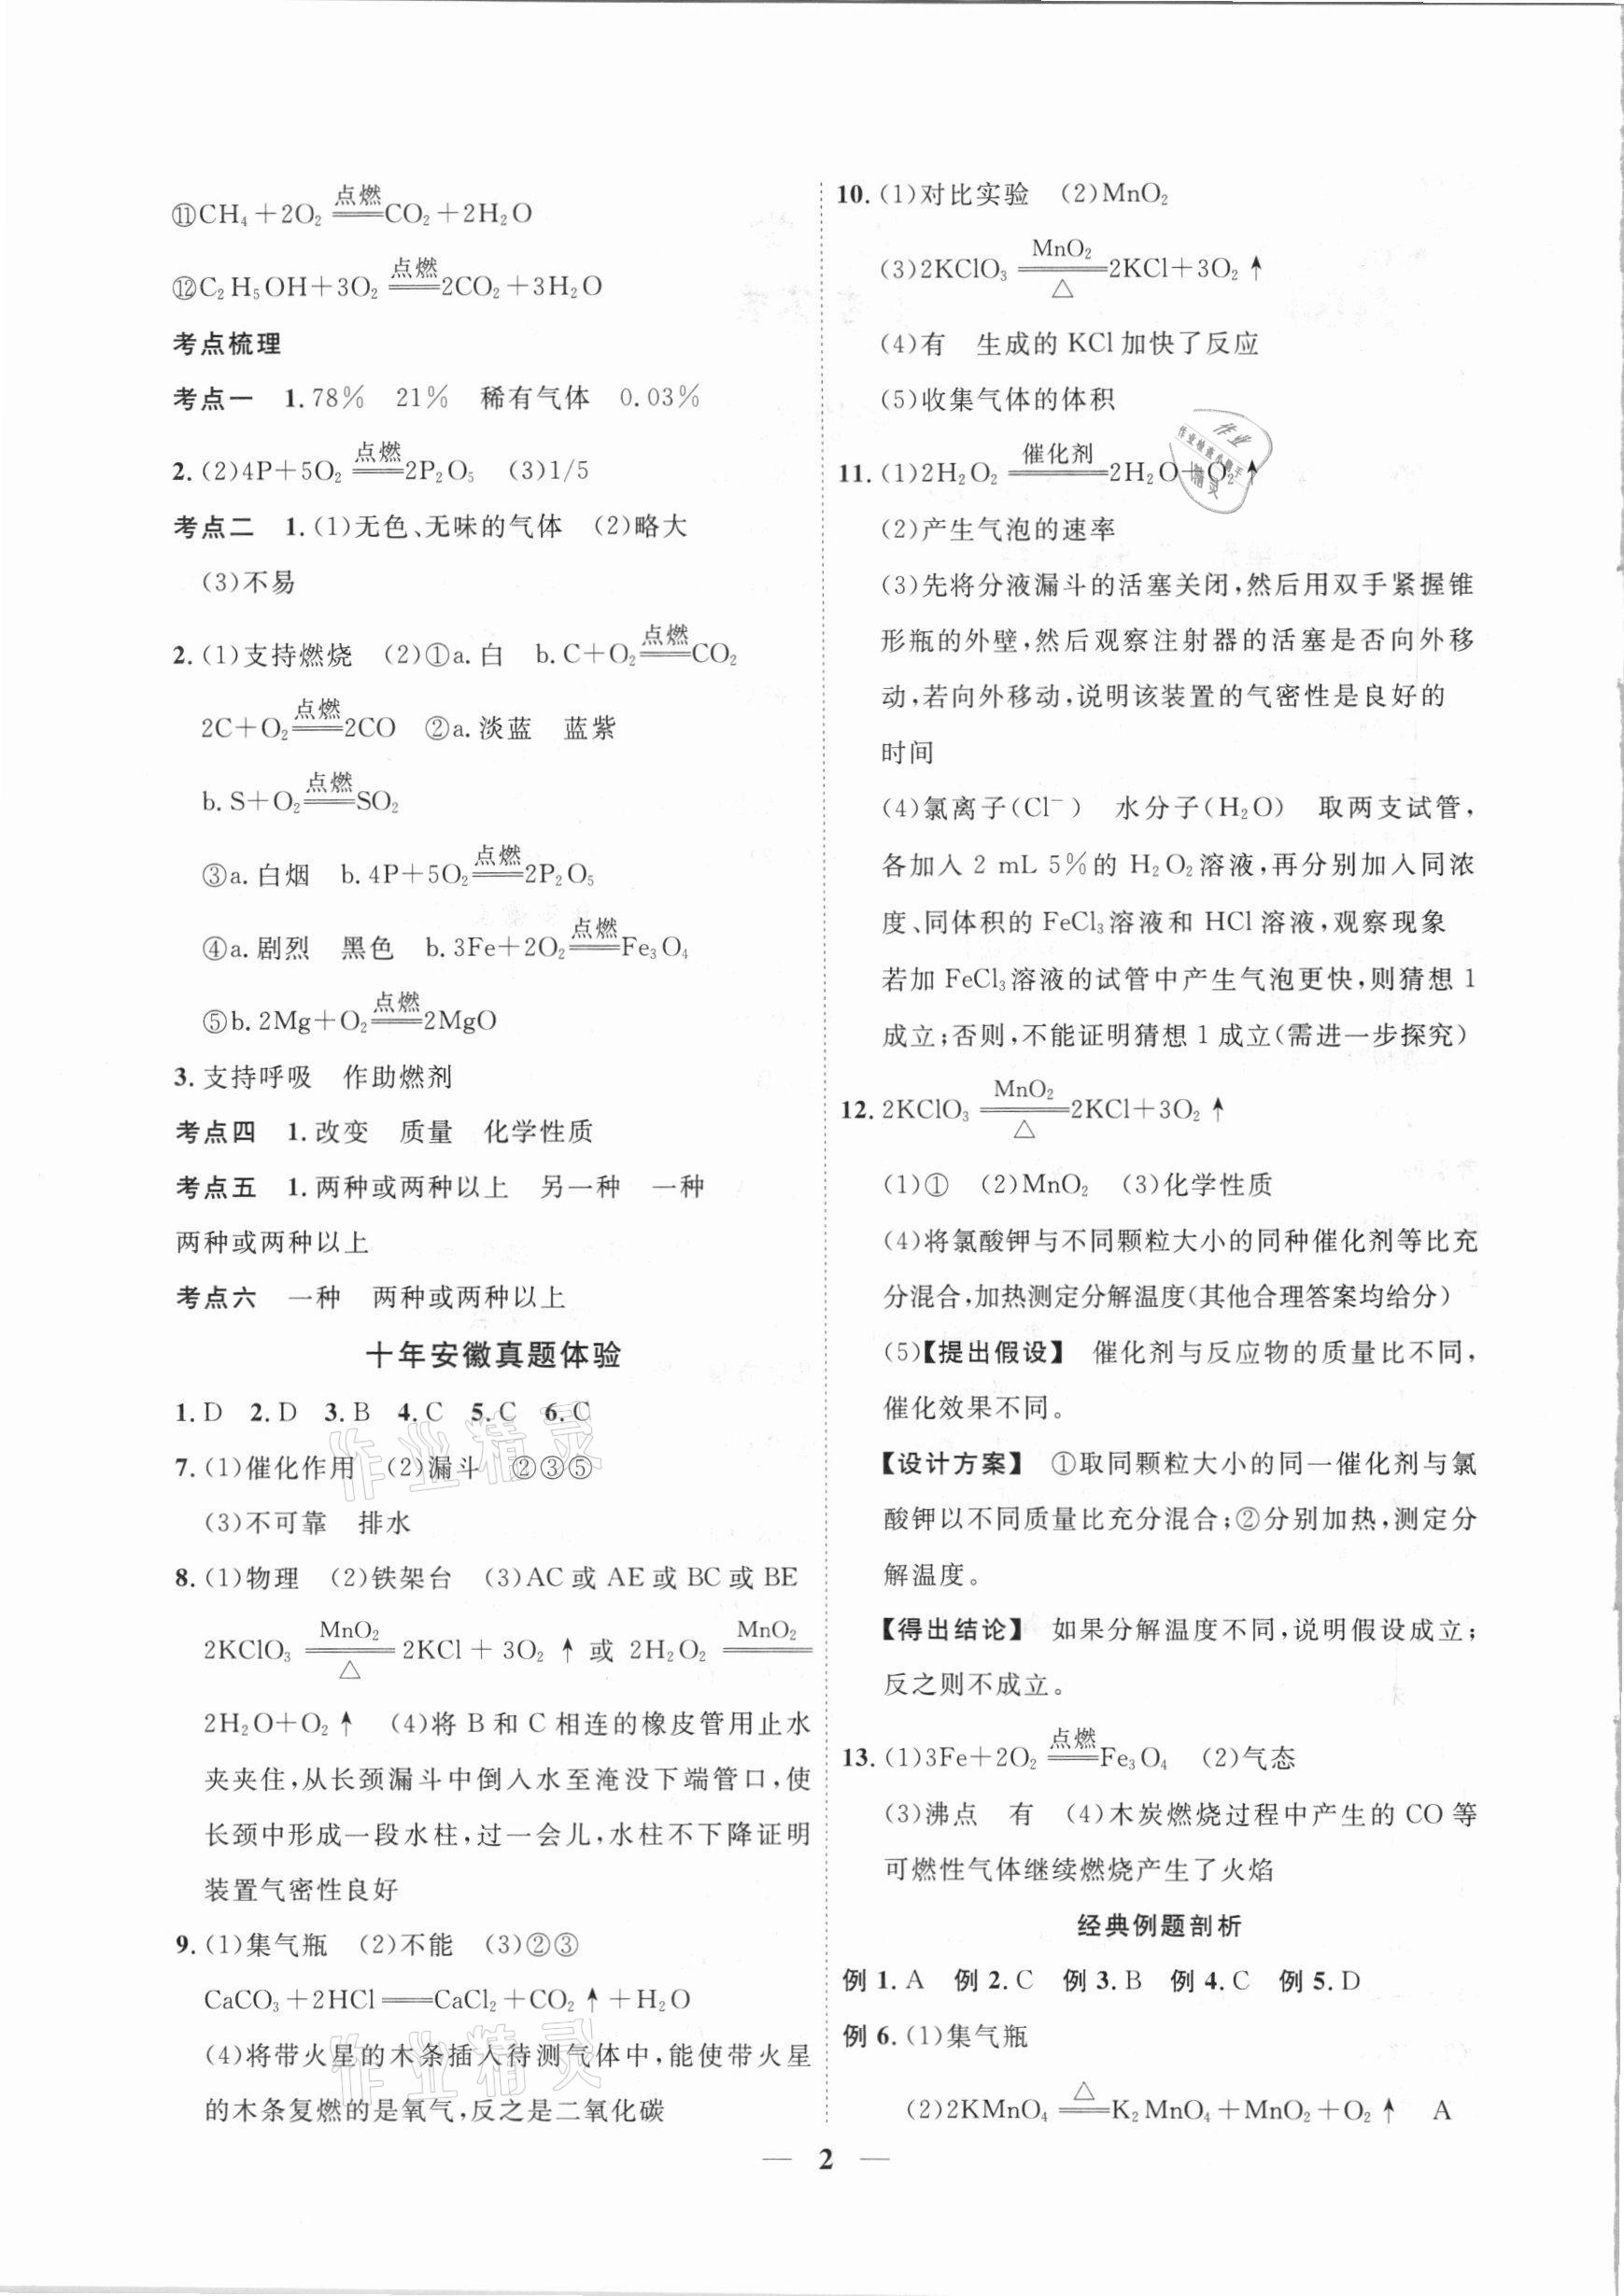 ⑪CH₄+2O₂ 点燃═══ CO₂+2H₂O
⑫C₂H₅OH+3O₂ 点燃═══ 2CO₂+3H₂O
考点梳理
考点一 1.78% 21% 稀有气体 0.03%
2.(2)4P+5O₂ 点燃═══ 2P₂O₅ (3)1/5
考点二 1.(1)无色、无味的气体 (2)略大
(3)不易
2.(1)支持燃烧 (2)①a.白 b.C+O₂ 点燃═══ CO₂
2C+O₂ 点燃═══ 2CO ②a.淡蓝 蓝紫
b.S+O₂ 点燃═══ SO₂
③a.白烟 b.4P+5O₂ 点燃═══ 2P₂O₅
④a.剧烈 黑色 b.3Fe+2O₂ 点燃═══ Fe₃O₄
⑤b.2Mg+O₂ 点燃═══ 2MgO
3.支持呼吸 作助燃剂
考点四 1.改变 质量 化学性质
考点五 1.两种或两种以上 另一种 一种
两种或两种以上
考点六 一种 两种或两种以上
十年安徽真题体验
1.D 2.D 3.B 4.C 5.C 6.C
7.(1)催化作用 (2)漏斗 ②③⑤
(3)不可靠 排水
8.(1)物理 (2)铁架台 (3)AC或AE或BC或BE
2KClO₃ MnO₂═══△ 2KCl+3O₂↑或 2H₂O₂ MnO₂═══
2H₂O+O₂↑ (4)将B和C相连的橡皮管用止水
夹夹住,从长颈漏斗中倒入水至淹没下端管口,使
长颈中形成一段水柱,过一会儿,水柱不下降证明
装置气密性良好
9.(1)集气瓶 (2)不能 (3)②③
CaCO₃+2HCl═══CaCl₂+CO₂↑+H₂O
(4)将带火星的木条插入待测气体中,能使带火星
的木条复燃的是氧气,反之是二氧化碳
10.(1)对比实验 (2)MnO₂
(3)2KClO₃ MnO₂═══△ 2KCl+3O₂↑
(4)有 生成的KCl加快了反应
(5)收集气体的体积
11.(1)2H₂O₂ 催化剂═══ 2H₂O+O₂↑
(2)产生气泡的速率
(3)先将分液漏斗的活塞关闭,然后用双手紧握锥
形瓶的外壁,然后观察注射器的活塞是否向外移
动,若向外移动,说明该装置的气密性是良好的
时间
(4)氯离子(Cl⁻) 水分子(H₂O) 取两支试管,
各加入2 mL 5%的H₂O₂溶液,再分别加入同浓
度、同体积的FeCl₃溶液和HCl溶液,观察现象
若加FeCl₃溶液的试管中产生气泡更快,则猜想1
成立;否则,不能证明猜想1成立(需进一步探究)
12.2KClO₃ MnO₂═══△ 2KCl+3O₂↑
(1)① (2)MnO₂ (3)化学性质
(4)将氯酸钾与不同颗粒大小的同种催化剂等比充
分混合,加热测定分解温度(其他合理答案均给分)
(5)【提出假设】 催化剂与反应物的质量比不同,
催化效果不同。
【设计方案】 ①取同颗粒大小的同一催化剂与氯
酸钾以不同质量比充分混合;②分别加热,测定分
解温度。
【得出结论】 如果分解温度不同,说明假设成立;
反之则不成立。
13.(1)3Fe+2O₂ 点燃═══ Fe₃O₄ (2)气态
(3)沸点 有 (4)木炭燃烧过程中产生的CO等
可燃性气体继续燃烧产生了火焰
经典例题剖析
例1.A 例2.C 例3.B 例4.C 例5.D
例6.(1)集气瓶
(2)2KMnO₄ △═══ K₂MnO₄+MnO₂+O₂↑ A
— 2 —
作业精灵
作业精灵
作业
作业检查小助手
精灵